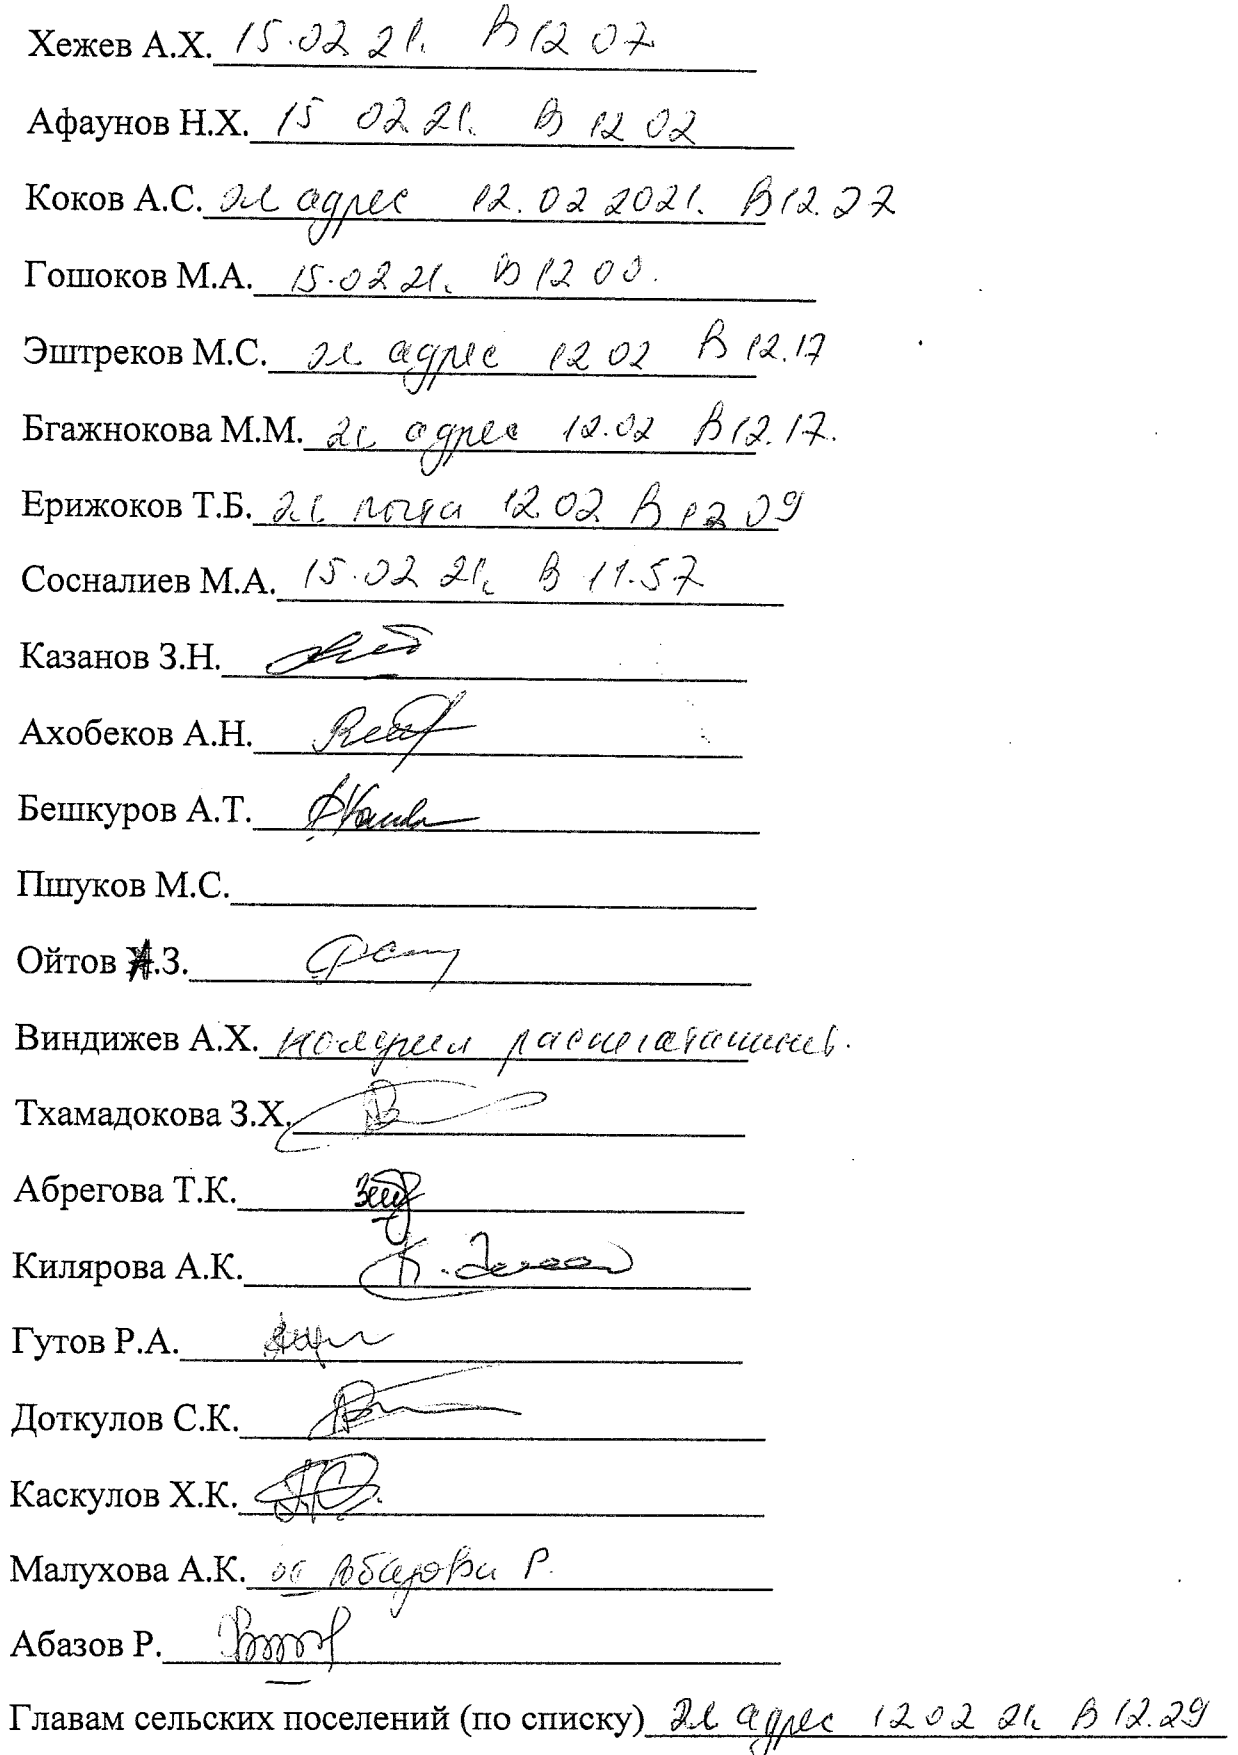 Хежев А.Х. 15.02 21. В 12 07
Афаунов Н.Х. 15 02 21. В 12 02
Коков А.С. эл адрес 12.02 2021. В 12.27
Гошоков М.А. 15.02 21. В 12 00.
Эштреков М.С. эл адрес 12 02 В 12.17
Бгажнокова М.М. эл адрес 12.02 В 12.17.
Ерижоков Т.Б. эл почта 12 02 В 12 09
Сосналиев М.А. 15.02 21. В 11.57
Казанов З.Н.
Ахобеков А.Н.
Бешкуров А.Т.
Пшуков М.С.
Ойтов А.З.
Виндижев А.Х.
Тхамадокова З.Х.
Абрегова Т.К.
Килярова А.К.
Гутов Р.А.
Доткулов С.К.
Каскулов Х.К.
Малухова А.К. Абазова Р.
Абазов Р.
Главам сельских поселений (по списку) эл адрес 12 02 21. В 12.29